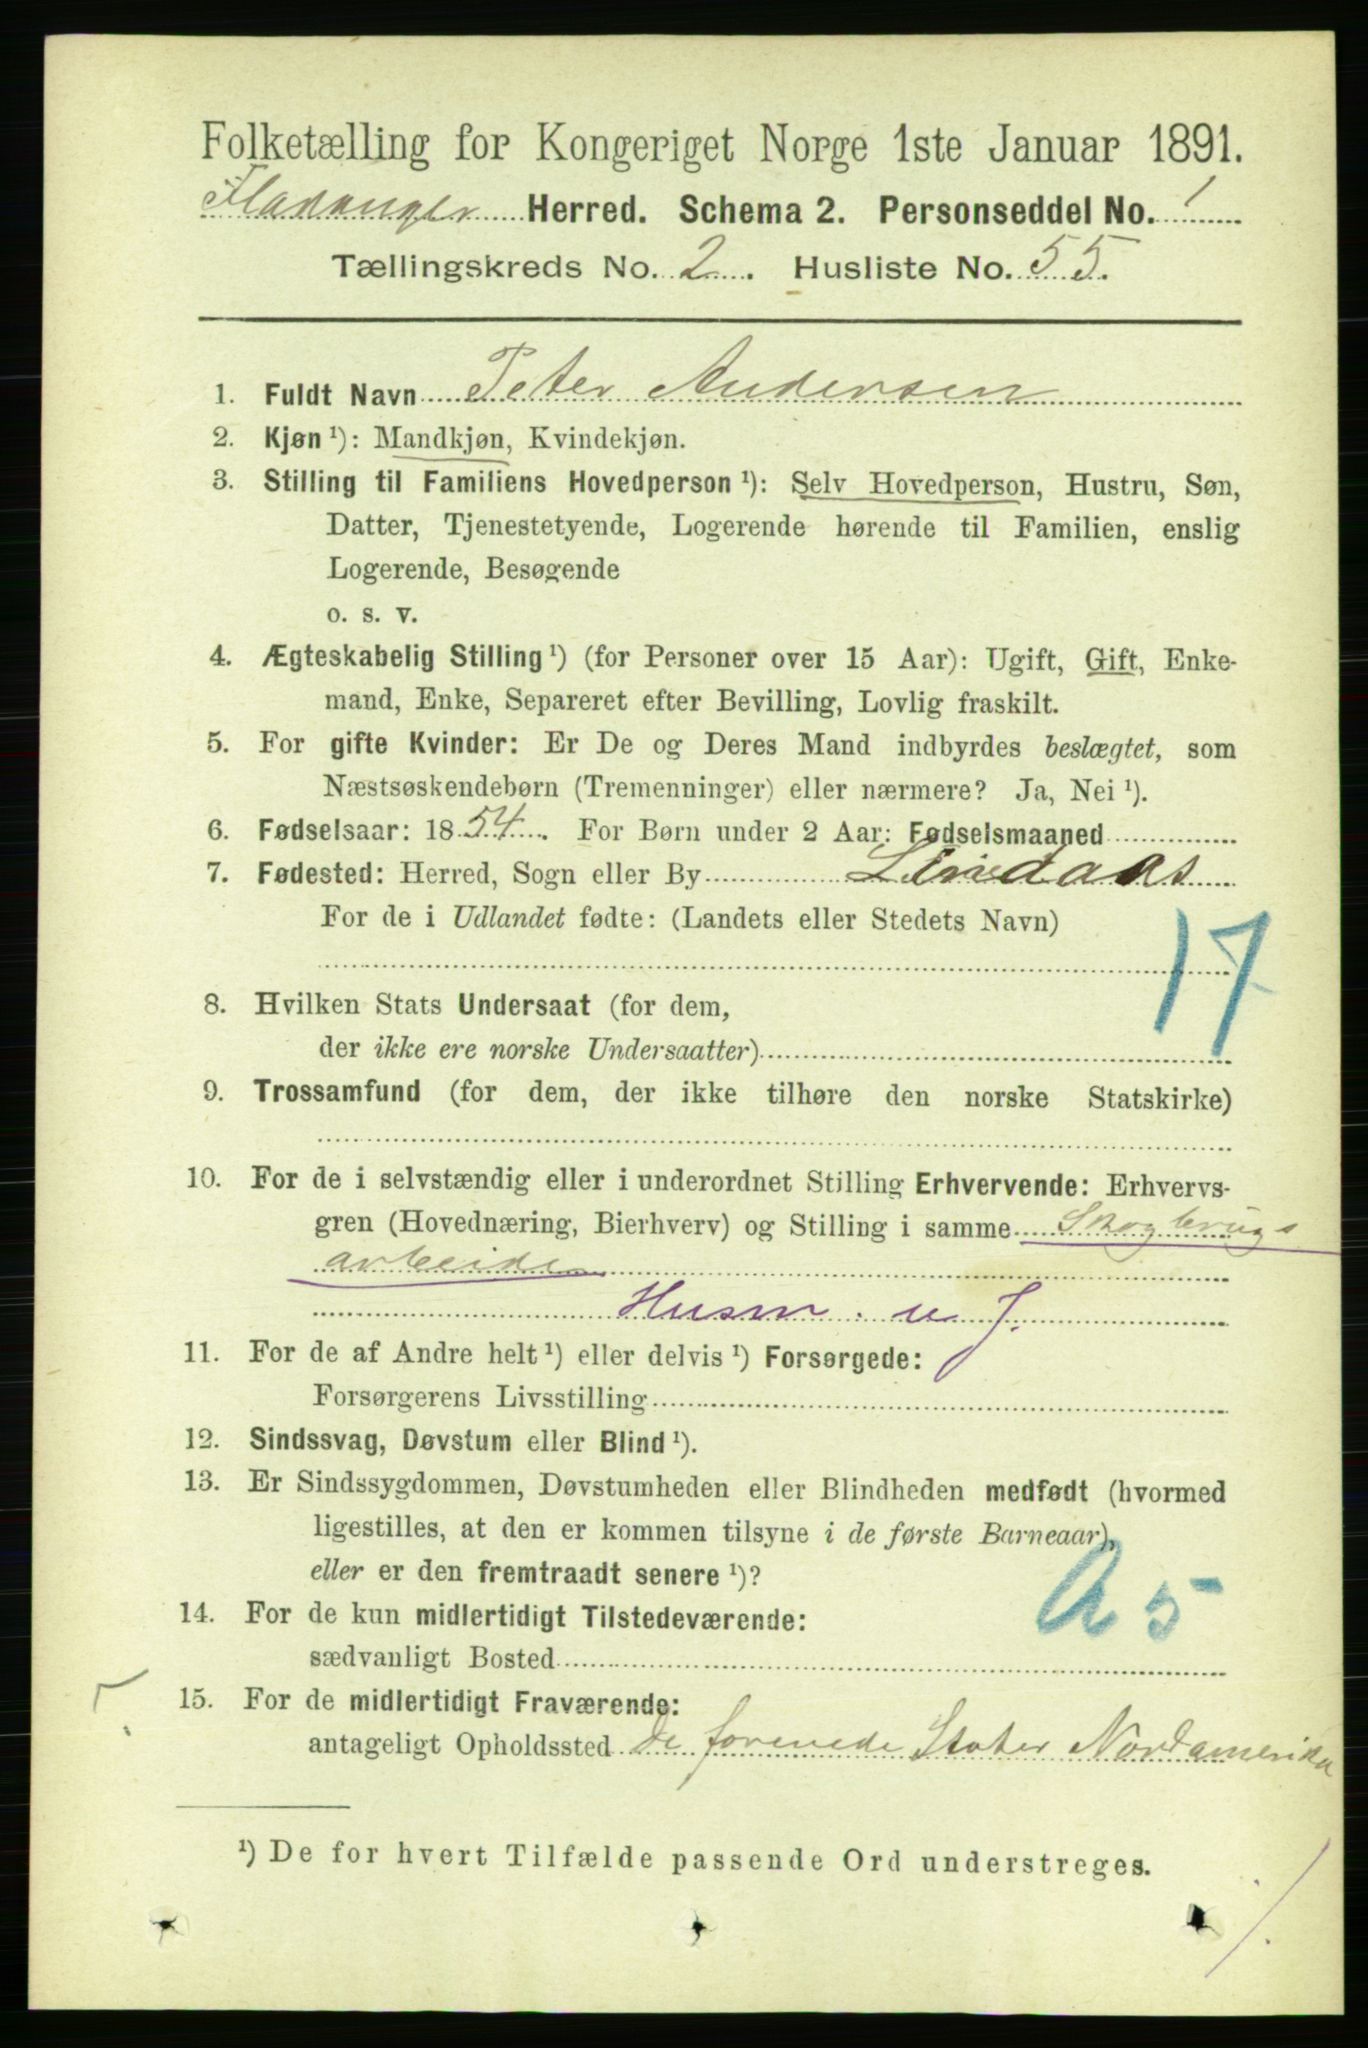 Folketælling for Kongeriget Norge 1ste Januar 1891.
Fladanger Herred. Schema 2. Personseddel No. 1
Tællingskreds No. 2. Husliste No. 55.
1. Fuldt Navn Peter Andersen
2. Kjøn ¹): Mandkjøn, Kvindekjøn.
3. Stilling til Familiens Hovedperson ¹): Selv Hovedperson, Hustru, Søn,
Datter, Tjenestetyende, Logerende hørende til Familien, enslig
Logerende, Besøgende
o. s. v.
4. Ægteskabelig Stilling ¹) (for Personer over 15 Aar): Ugift, Gift, Enke-
mand, Enke, Separeret efter Bevilling, Lovlig fraskilt.
5. For gifte Kvinder: Er De og Deres Mand indbyrdes beslægtet, som
Næstsøskendebørn (Tremenninger) eller nærmere? Ja, Nei ¹).
6. Fødselsaar: 1854. For Børn under 2 Aar: Fødselsmaaned
7. Fødested: Herred, Sogn eller By Lindaas
For de i Udlandet fødte: (Landets eller Stedets Navn)
17
8. Hvilken Stats Undersaat (for dem,
der ikke ere norske Undersaatter)
9. Trossamfund (for dem, der ikke tilhøre den norske Statskirke)
10. For de i selvstændig eller i underordnet Stilling Erhvervende: Erhvervs-
gren (Hovednæring, Bierhverv) og Stilling i samme Skogbrugs
arbeider
Husm. u J.
11. For de af Andre helt ¹) eller delvis ¹) Forsørgede:
Forsørgerens Livsstilling
12. Sindssvag, Døvstum eller Blind ¹).
13. Er Sindssygdommen, Døvstumheden eller Blindheden medfødt (hvormed
ligestilles, at den er kommen tilsyne i de første Barneaar),
eller er den fremtraadt senere ¹)?
A 5
14. For de kun midlertidigt Tilstedeværende:
sædvanligt Bosted
15. For de midlertidigt Fraværende:
antageligt Opholdssted de forenede Stater Nordamerika
¹) De for hvert Tilfælde passende Ord understreges.